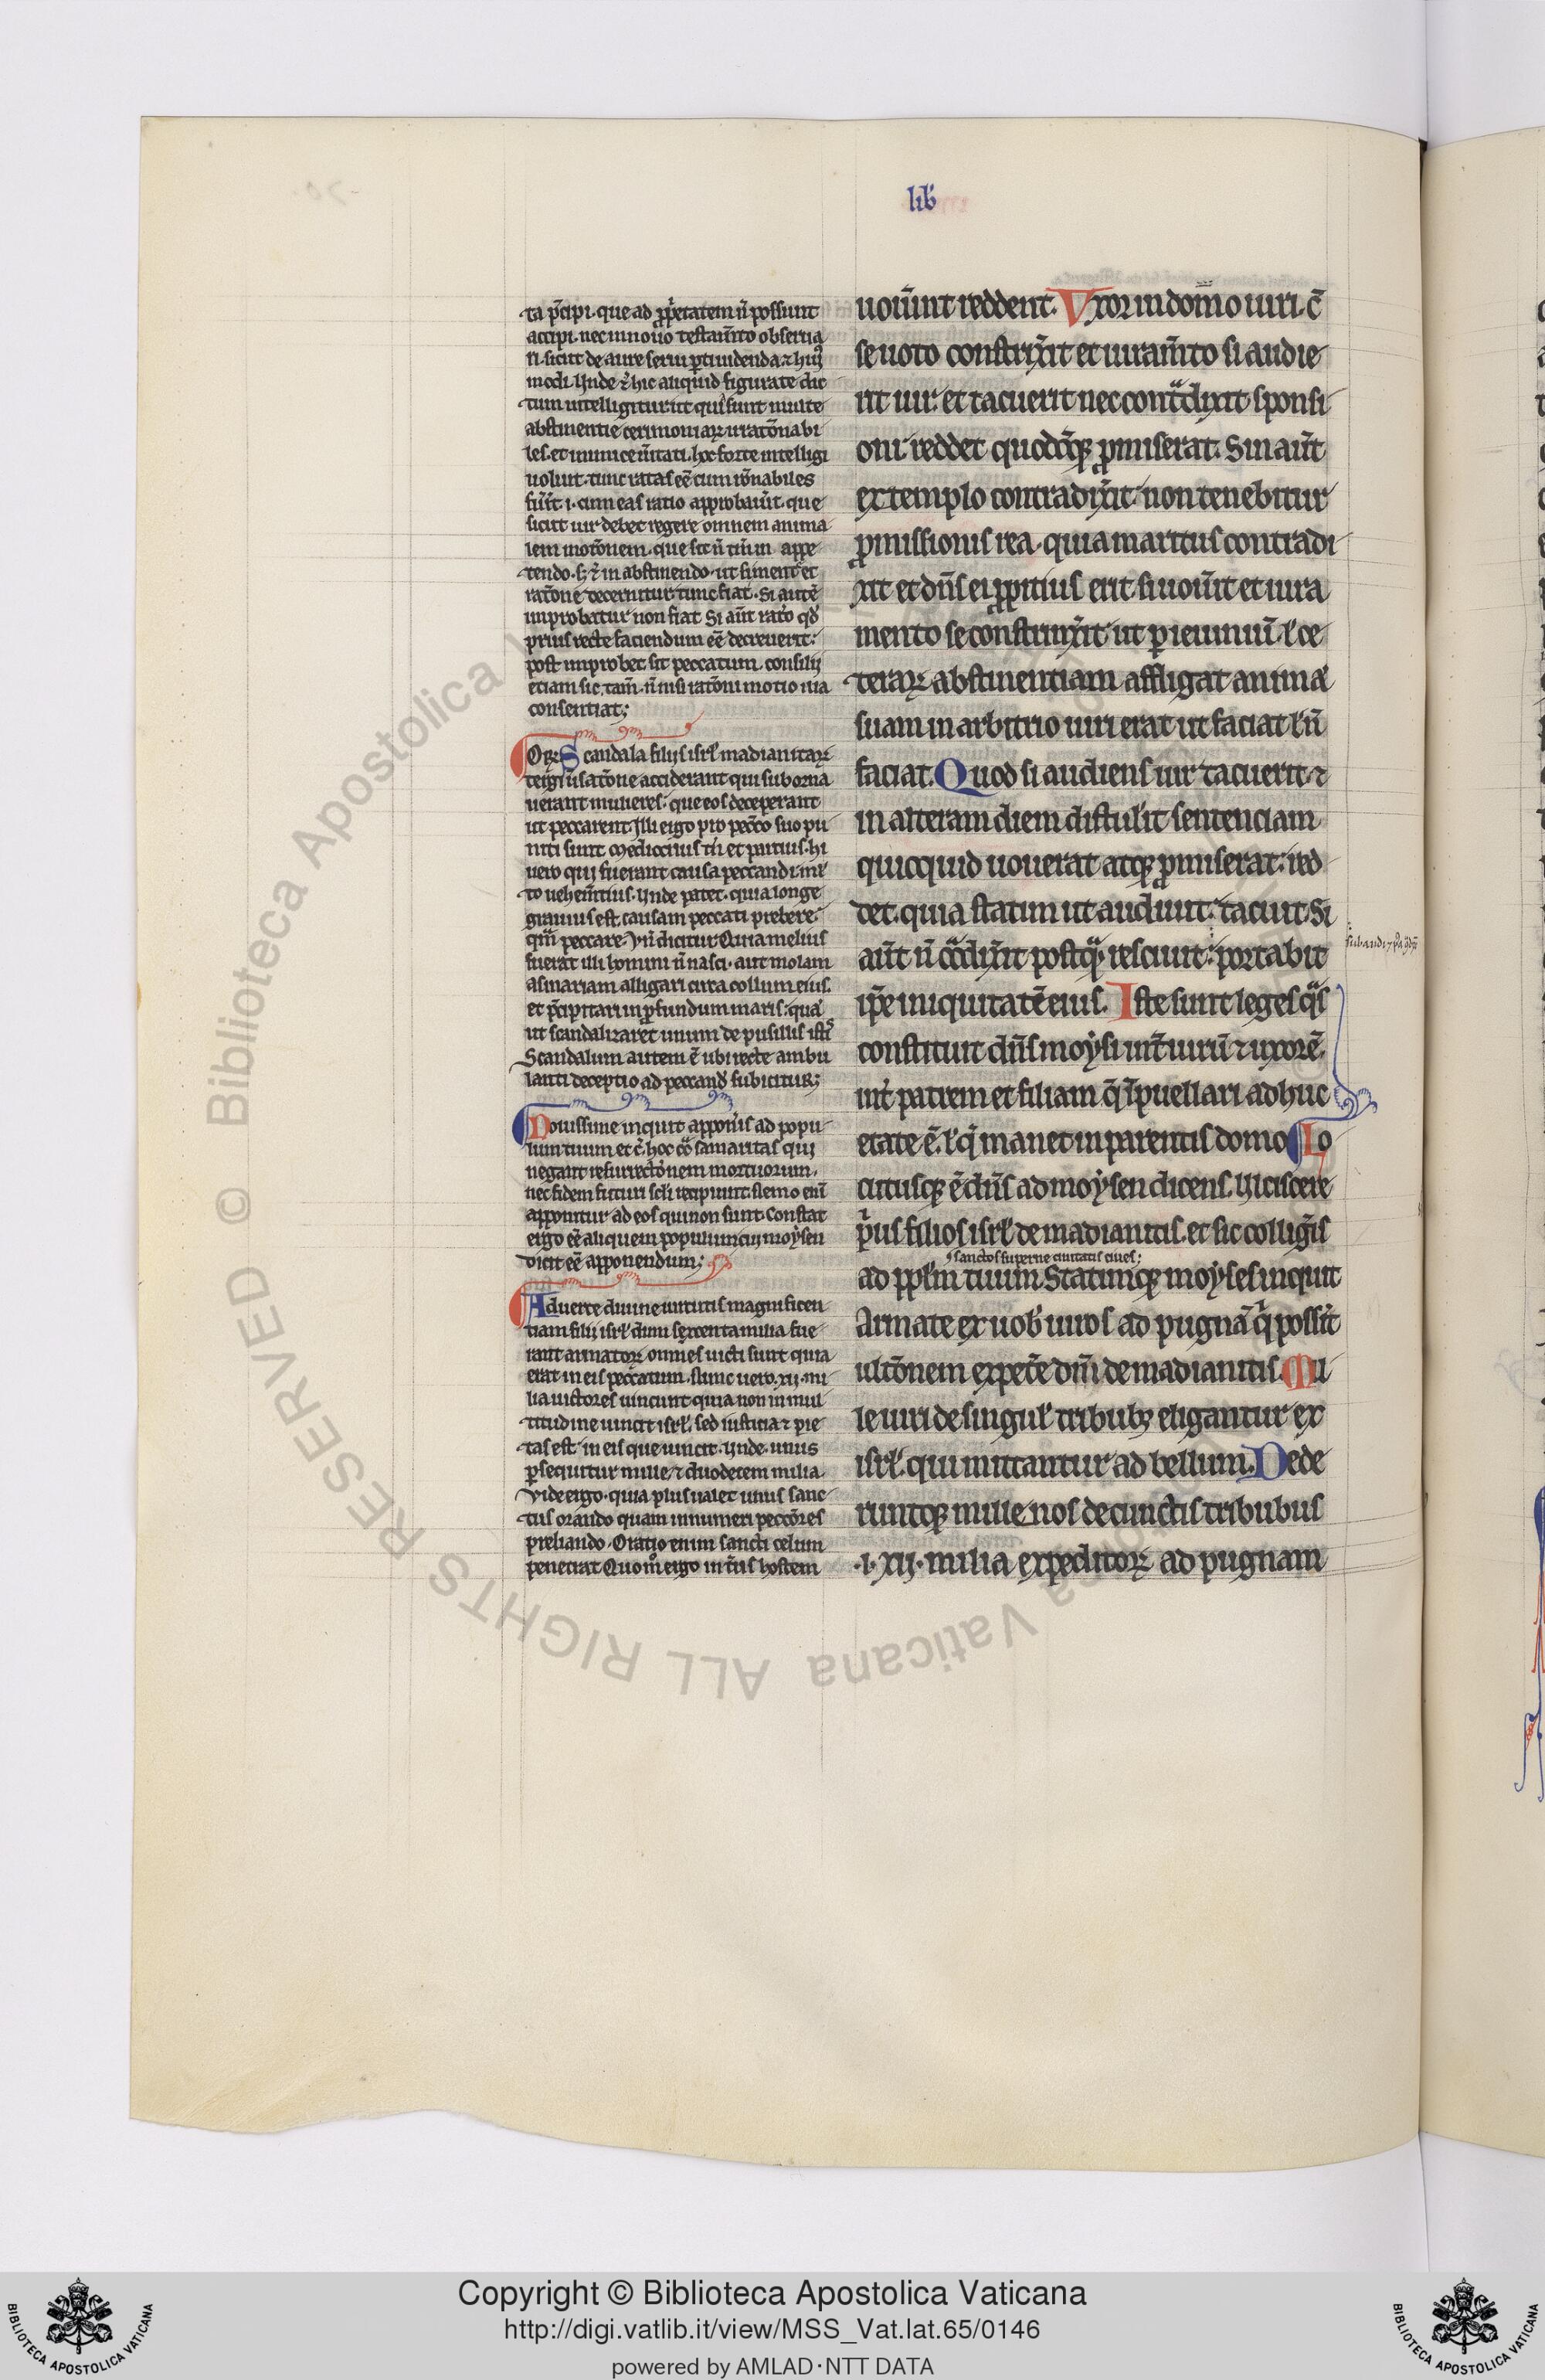 lib̾
ta p̄cipi. que ad ꝓp̄etatem ñ possunt
accipi. nec in nouo testam̄to obserua
ri. sicut de aure serui ptundenda. ⁊ huiꝰ
modi. Unde ⁊ hic aliquid figurate dic
tum intelligitur. ut qui sunt multe
abstinentie cerimoniaꝝ irratōnabi
les. et inimice ũitati. hoc forte intelligi
uoluit. tunc ratas eē cum rōnabiles
fūit. i. cum eas ratio approbauit. que
sicut uir debet regere omnem anima
lem motōnem. que fit ñ tm̄ in appe
tendo. sꝫ ⁊ in abstinendo. ut si mente et
ratōne decernitur tunc fiat. Si autē
improbatur non fiat. Si aut̄ ratō qd̾
prius recte faciendum eē decreuerit:
post improbet. sit peccatum consilij
etiam sic. tam̄. ñ nisi ratōni motio uia
consentiat;
Oꝝ. Scandala filijs isrl̾ madianitaꝝ
uerant mulieres. que eos deceperant
ut peccarent. Illi ergo pro pecc̄o suo pu
niti sunt mediocrius tn̄ et parcius. hi
uero qui fuerant causa peccandi. mĺ
to uehem̄tius. Unde patet. quia longe
grauius est. causam peccati prebere.
qm̄ peccare. Vn̄ dicitur Quia melius
fuerat illi homini ñ nasci. aut molam
asinariam alligari circa collum eius.
et p̄cipitari in ꝓfundum maris: quā
ut scandalizaret unum de pusillis istis
Scandalum autem ē ubi recte ambu
lanti deceptio ad peccand̾ subicitur;
Nouissime inquit apponeris ad popu
lum tuum et c̄. hoc cō samaritas qui
negant resurrectōnem mortuorum.
nec fidem futuri scl̾i recipiunt. Nemo enī
apponitur ad eos qui non sunt. Constat
ergo eē aliquem populum cui moẏsen
dicit eē apponendum;
Aduerte diuine uirtutis magnificen
tiam. filij isrl̾ dum sexcenta milia fue
rant armatoꝝ. omnes uicti sunt quia
erat in eis peccatum. Nunc uero. xij. mi
lia uictores uincunt quia non in mul
titudine uincit isrl̾. sed iusticia ⁊ pie
tas est in eis que uincit. Unde. unus
ꝑsequitur mille. ⁊ duodecem milia.
Vide ergo. quia plus ualet unus sanc
tus orando quam innumeri peccōres
preliando. Oratio enim sancti celum
penetrat Quom̊ ergo in t̄ris hostem
uoūint reddent. Vxor in domo uiri. c̄
se uoto constrix̄it et iuram̄to si audie
rit uir. et tacuerit nec cont̃dixit sponsi
oni reddet quodcūqꝫ ꝓmiserat. Sin aūt
extemplo contradix̄it non tenebitur
ꝓmissionis rea. quia maritus contradi
xit et dn̄s ei ꝓpitius erit si uoūit et iura
mento se constrinx̄it ut p ieiuniū. l̾ ce
teraꝝ abstinentiam affligat animā
suam in arbitrio uiri erat ut faciat l̾ ñ
faciat. Quod si audiens uir tacuerit. ⁊
in alteram diem distul̾it sentenciam
quicquid uouerat atqꝫ ꝓmiserat. red
det. quia statim ut audiuit. tacuit. Si
aūt ñ cōdix̄it postqͣ. resciuit: portabit
ip̄e iniquitatē eius. Iste sunt leges qͣs
constituit dn̄s moẏsi int̄ uirū ⁊ uxorē.
int̄ patrem et filiam q̄ ī puellari adhuc
etate ē. l̾ q̄ manet in parentis domo Lo
cutusqꝫ ē dn̄s ad moẏsen dicens. Ulciscere
pͥus filios isrl̾ de madianitis. et sic colligeris
⁊ sanctos superne ciuitatis ciues;
ad ppl̾m tuum. Statimqꝫ moẏses inquit
Armate ex uob̾ uiros ad pugnā qͥ possīt
ultōnem expetē dn̄i de madianitis. Mil
le uiri de singul̾ tribubꝫ eligantur ex
isrl̾. qui mittantur ad bellum. Dede
runtqꝫ millenos de cunctis tribubus
.i. xij. milia expeditoꝝ ad pugnam
Copyright © Biblioteca Apostolica Vaticana
http://digi.vatlib.it/view/MSS_Vat.lat.65/0146
powered by AMLAD·NTT DATA
© Biblioteca Apostolica Vaticana ALL RIGHTS RESERVED
BIBLIOTECA APOSTOLICA VATICANA
BIBLIOTECA APOSTOLICA VATICANA